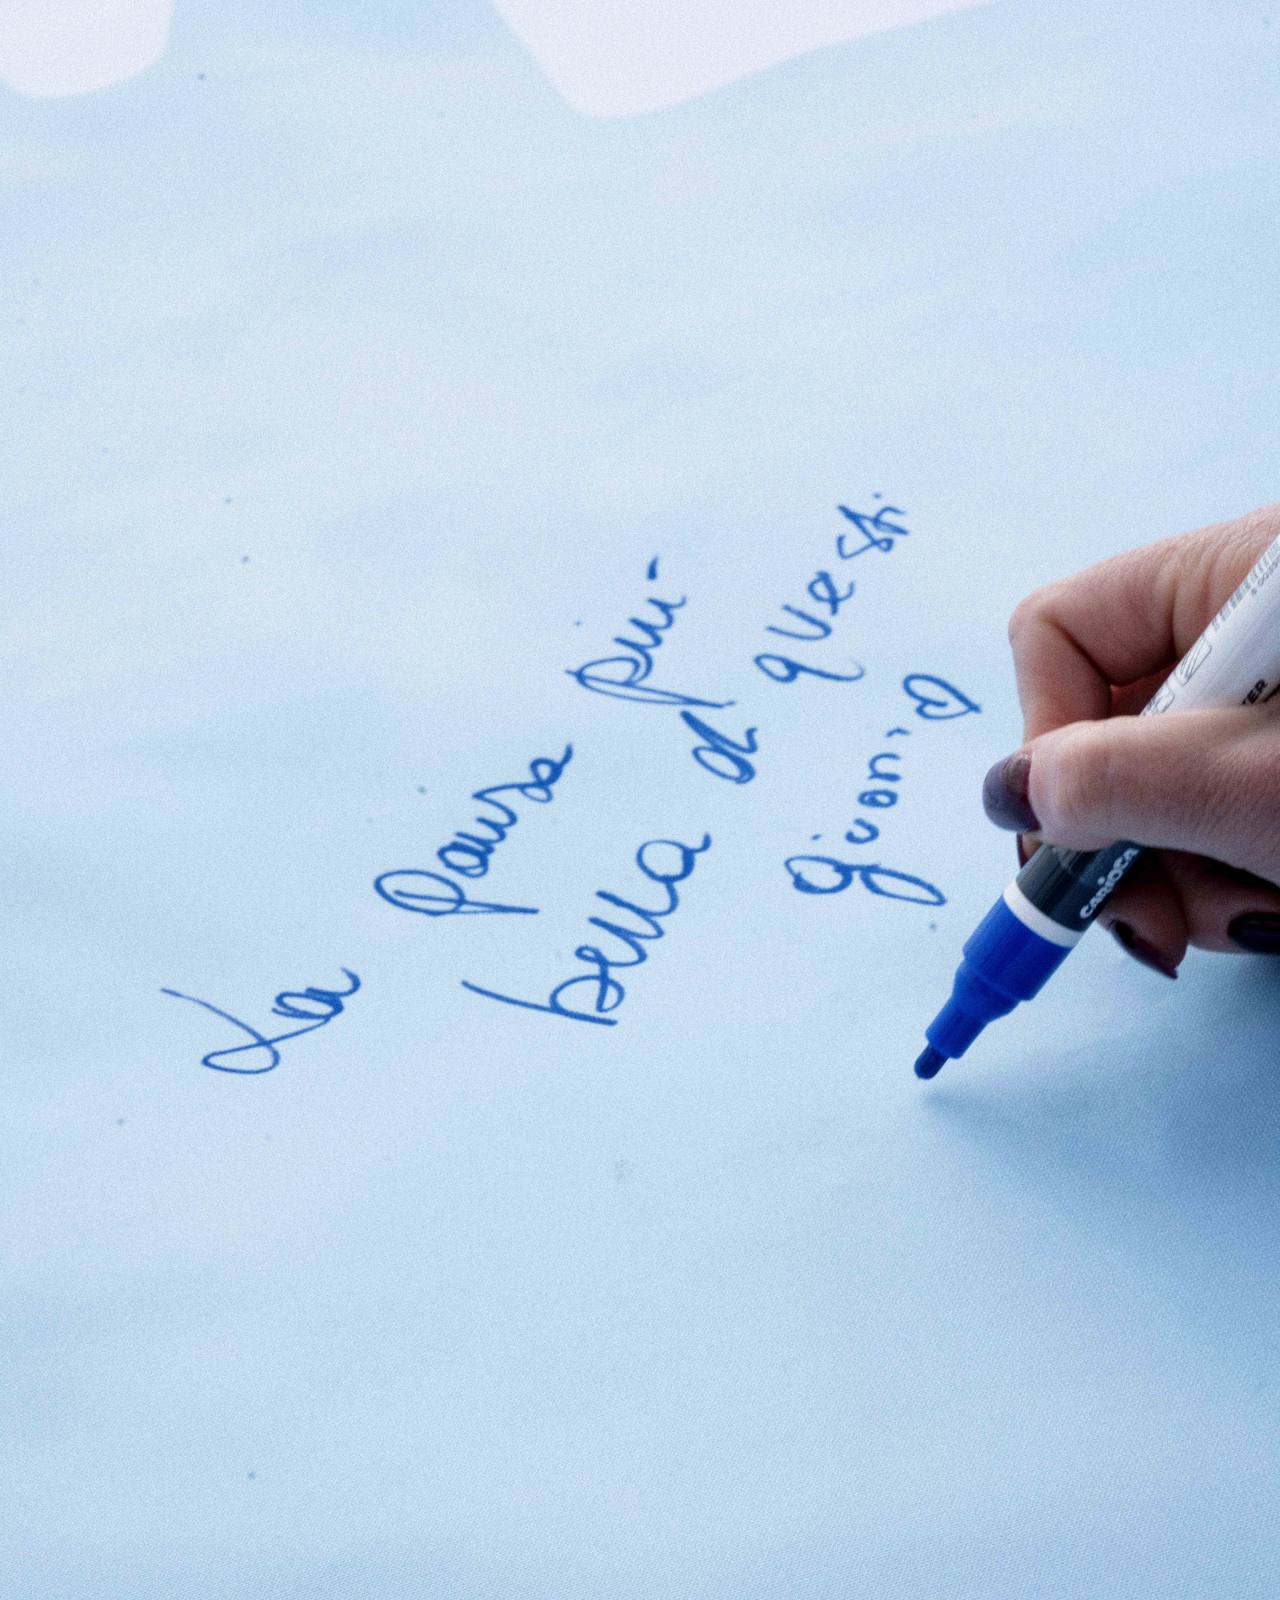 La pausa più
bella di questi
giorni ♡
CARIOCA